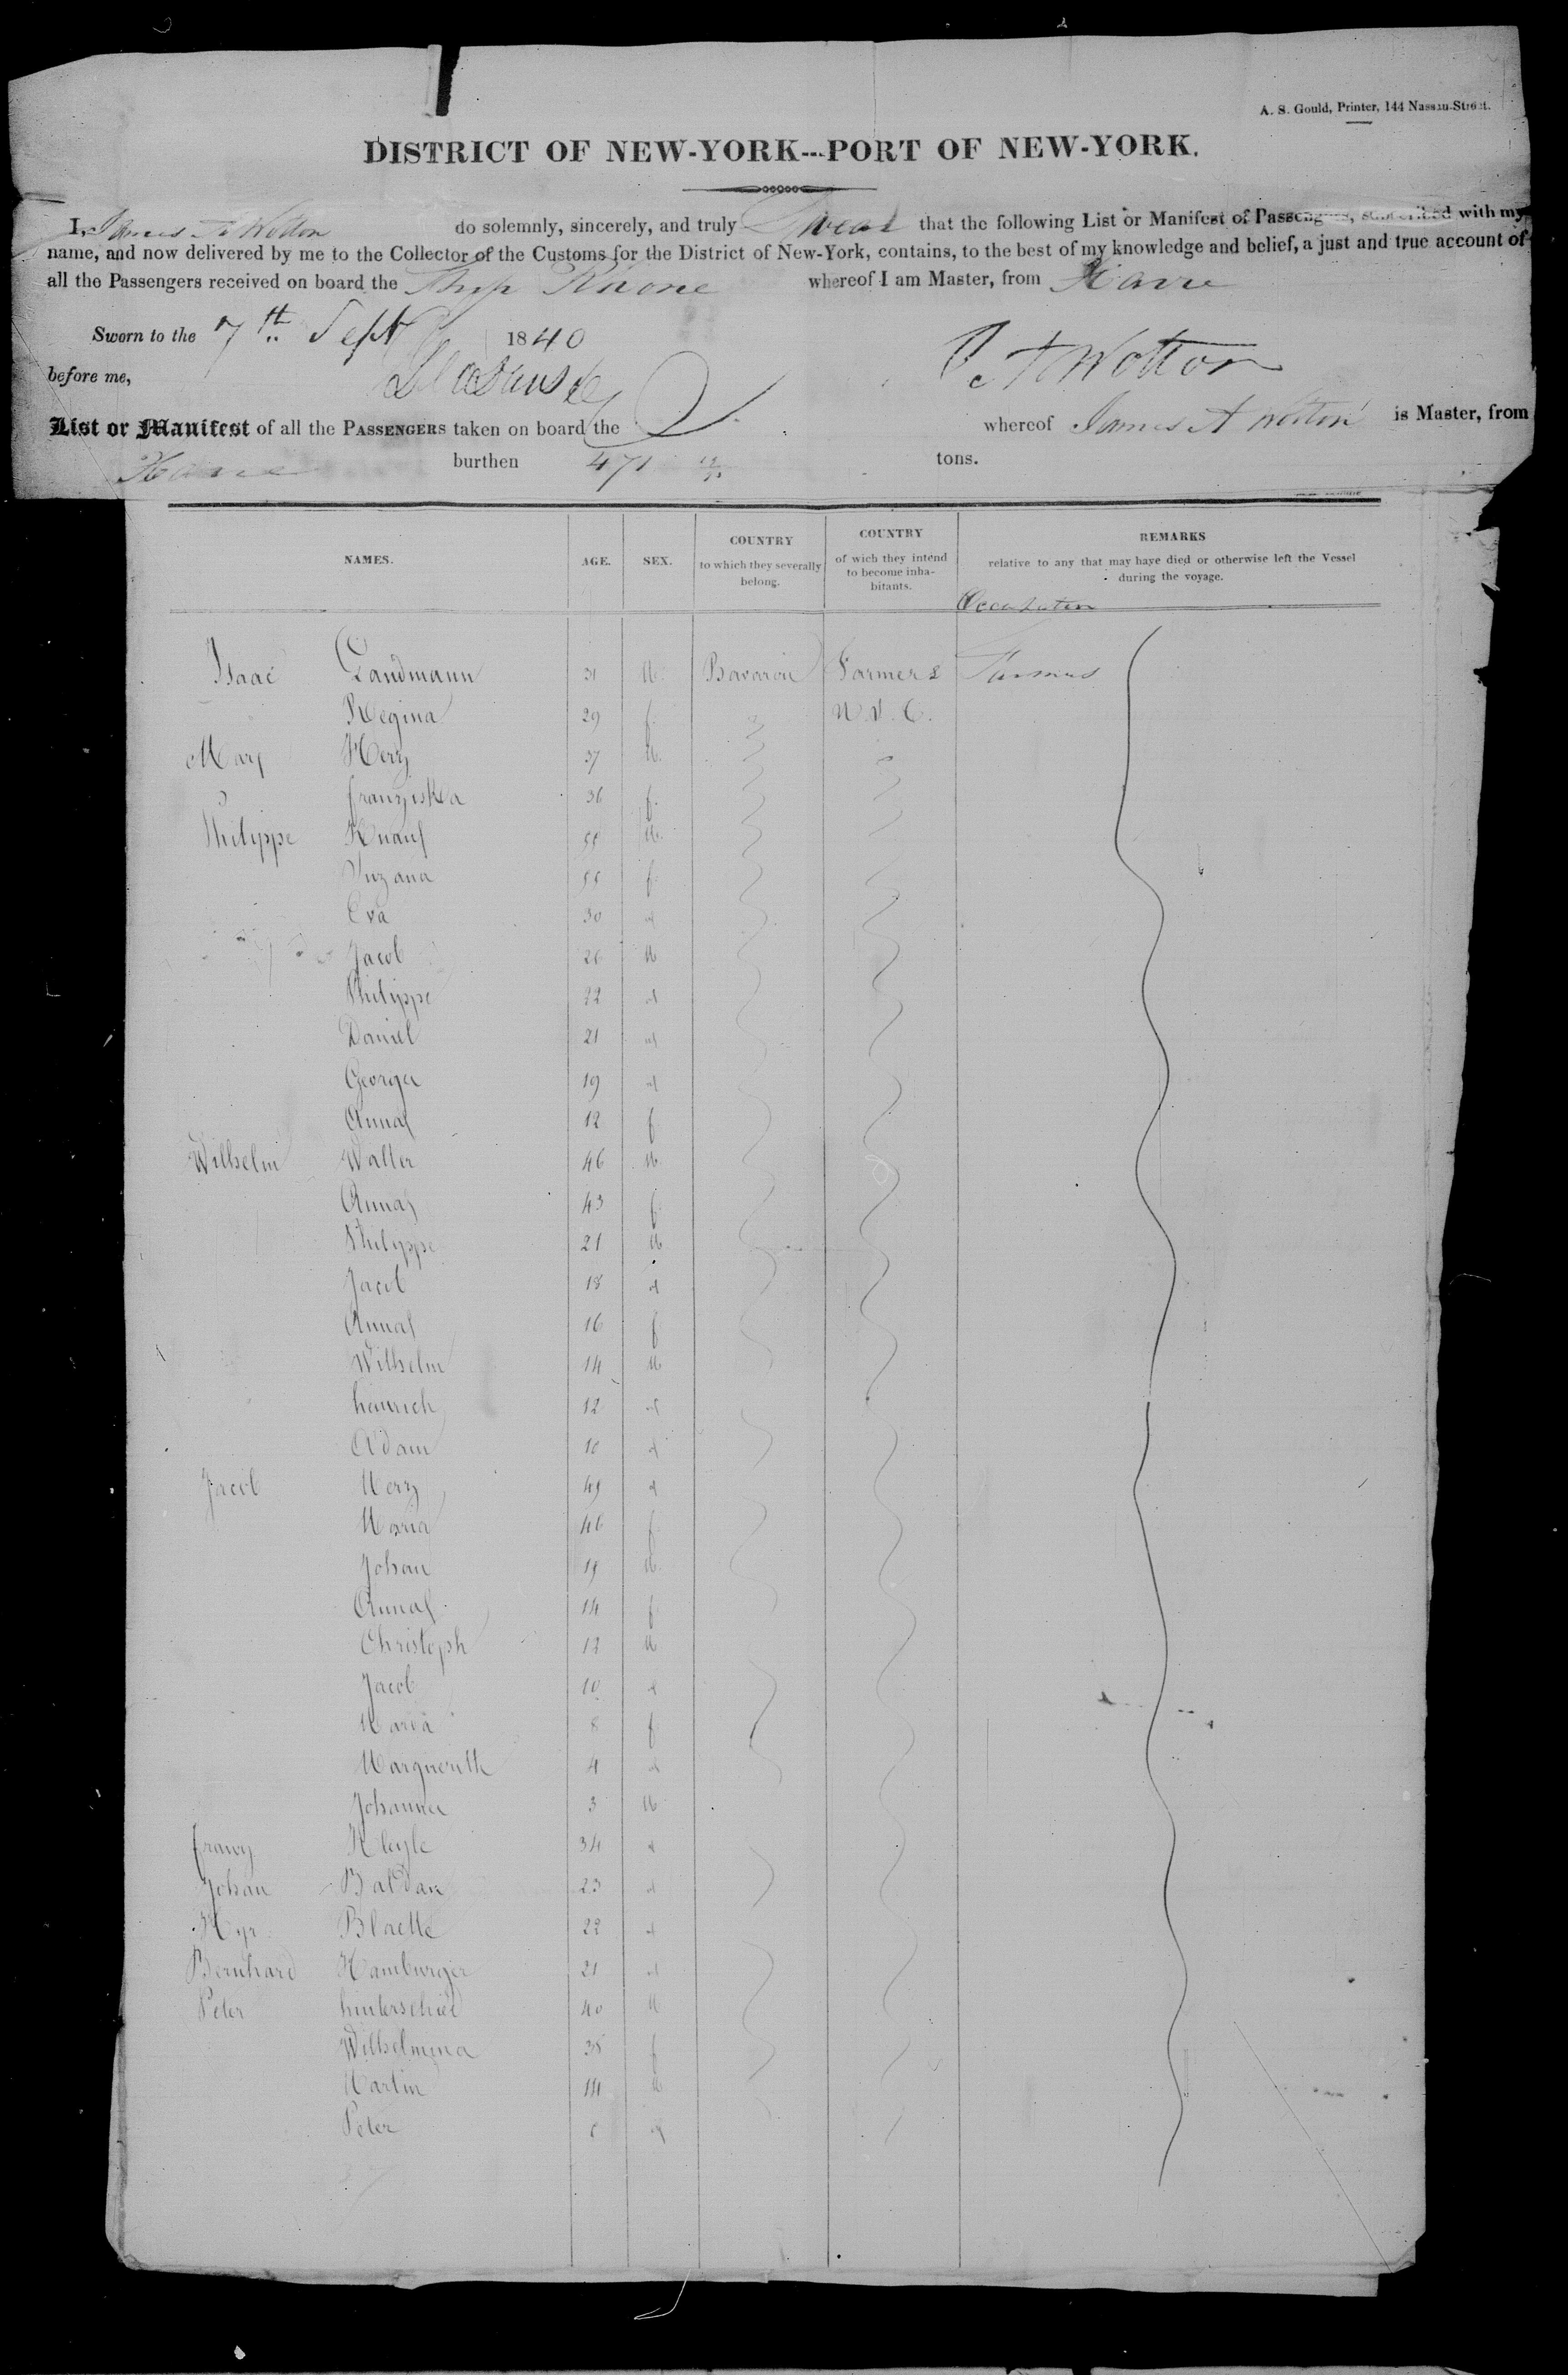 A. S. Gould, Printer, 144 Nassau-Street.
DISTRICT OF NEW-YORK---PORT OF NEW-YORK.
I, James A Wotton do solemnly, sincerely, and truly Swear that the following List or Manifest of Passengers, subscribed with my
name, and now delivered by me to the Collector of the Customs for the District of New-York, contains, to the best of my knowledge and belief, a just and true account of
all the Passengers received on board the Ship Rhone whereof I am Master, from Havre
Sworn to the 7th Sept 1840
before me, J A Wotton
List or Manifest of all the PASSENGERS taken on board the whereof James A Wotton is Master, from
Havre burthen 471 tons.
NAMES. AGE. SEX. COUNTRY to which they severally belong. COUNTRY of wich they intend to become inhabitants. REMARKS relative to any that may have died or otherwise left the Vessel during the voyage.
Occupation
Isaac Landmann 31 M. Bavaria Farmers Farmers
Regina 29 f. N.Y.C.
Mary Herz 37 M.
franziska 36 f.
Philippe Knauf 55 M.
Suzana 55 f.
Eva 30 d
Jacob 26 M
Philippe 22 d
Daniel 21 d
George 19 d
Anna 12 f
Wilhelm Walter 46 M.
Anna 43 f.
Philippe 21 M
Jacob 18 d
Anna 16 f
Wilhelm 14 M
heinrich 12 d
Adam 10 d
Jacob Merz 49 d
Maria 46 f.
Johan 19 M.
Anna 14 f.
Christoph 12 M
Jacob 10 d
Maria 8 f.
Marguerith 4 d
Johannes 3 M
franz Kleyle 34 d
Johan 23 d
22 d
Bernhard Hamburger 21 d
Peter 40 M
Wilhelmina 38 f
Martin 14 M
Peter d